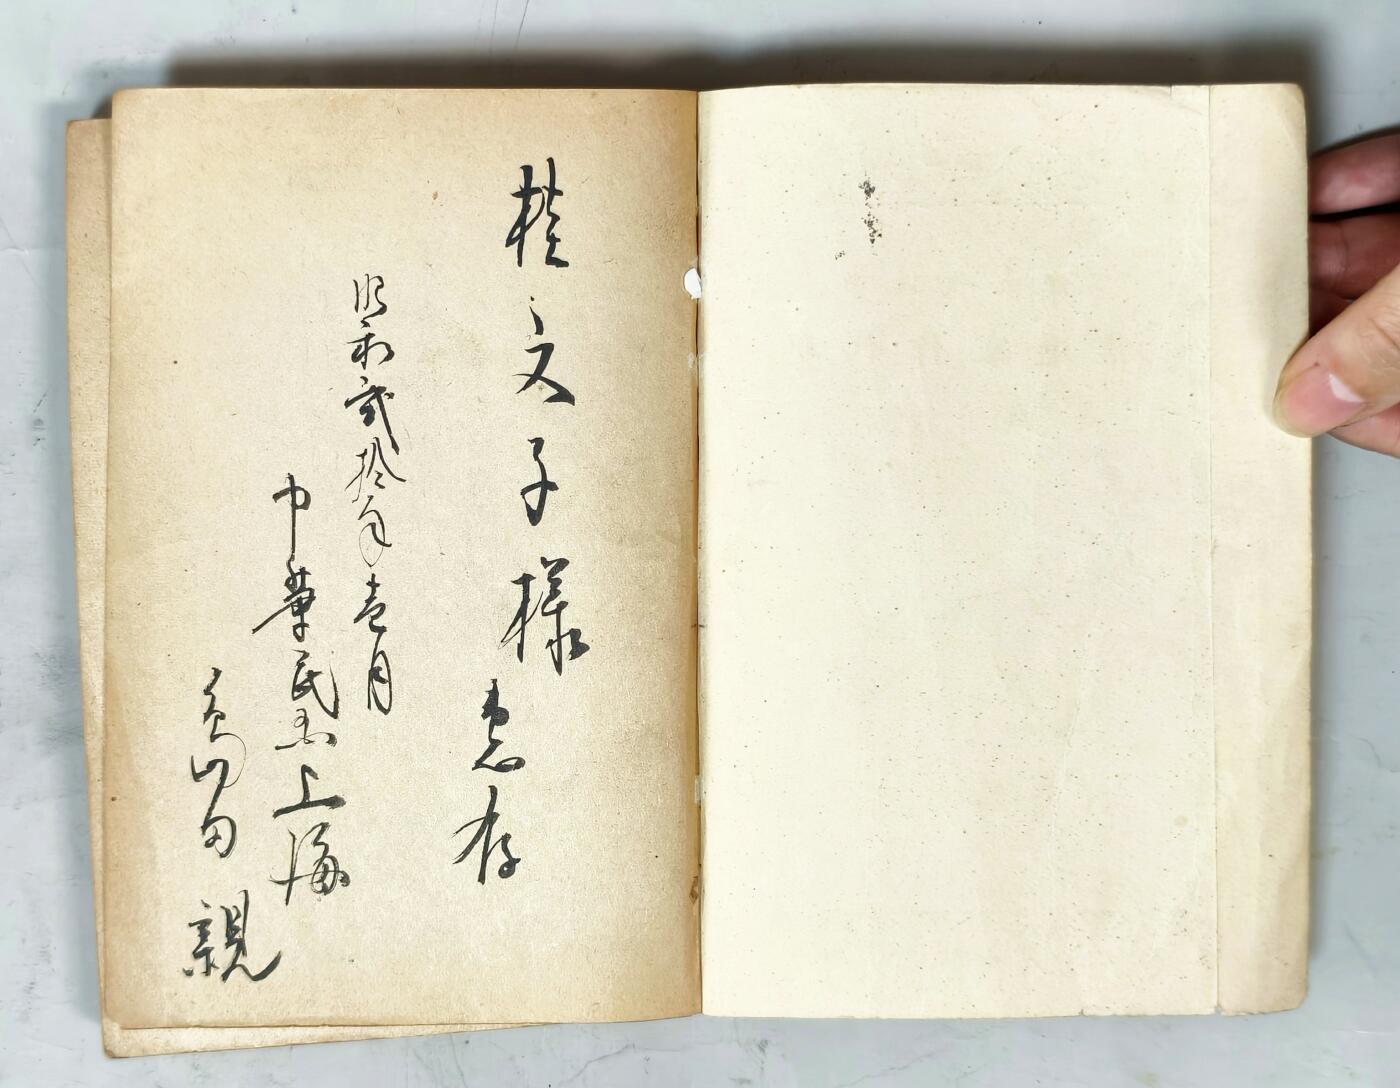 桂文子様恵存
昭和弐拾年壱月
中華民国上海
島田親